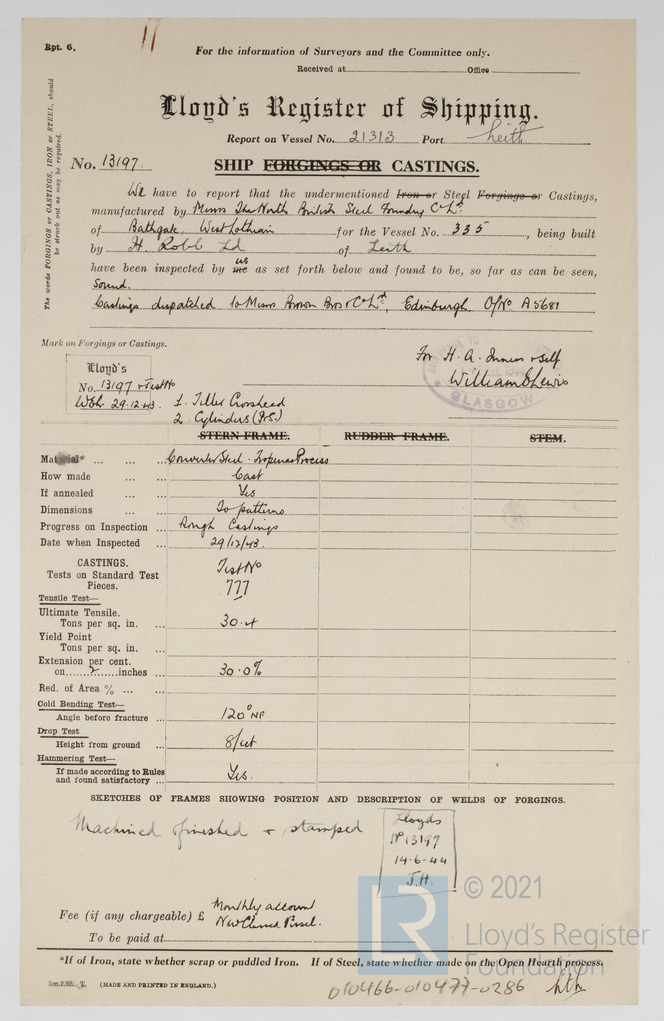 Rpt. 6.
For the information of Surveyors and the Committee only.
Received at Office
Lloyd's Register of Shipping.
Report on Vessel No. 21313 Port Leith
No. 13197.
SHIP FORGINGS OR CASTINGS.
The words FORGINGS or CASTINGS, IRON or STEEL, should
be struck out as may be required.
We have to report that the undermentioned Iron or Steel Forgings or Castings,
manufactured by Messrs The North British Steel Foundry Co Ld.
of Bathgate, West Lothian for the Vessel No. 335, being built
by H. Robb Ld of Leith
us
have been inspected by me as set forth below and found to be, so far as can be seen,
Sound.
Castings dispatched to Messrs Brown Bros & Co Ld, Edinburgh. O/No A5681
Mark on Forgings or Castings.
For H. A. Inness & self
William S Lewis
GLASGOW
Lloyd's
No. 13197 & Test No
29.12.43
1. Tiller Crosshead
2. Cylinders
STERN FRAME. RUDDER FRAME. STEM.
Material* Converter Steel - Tropenas Process
How made Cast
If annealed Yes
Dimensions To patterns
Progress on Inspection Rough Castings
Date when Inspected 29/12/43.
CASTINGS.
Tests on Standard Test
Pieces.
Test No
777
Tensile Test—
Ultimate Tensile.
Tons per sq. in. 30.4
Yield Point
Tons per sq. in.
Extension per cent.
on 2 inches 30.0%
Red. of Area %
Cold Bending Test—
Angle before fracture 120° NF
Drop Test
Height from ground 8 feet
Hammering Test—
If made according to Rules
and found satisfactory Yes.
SKETCHES OF FRAMES SHOWING POSITION AND DESCRIPTION OF WELDS OF FORGINGS.
Machined & finished & stamped
Lloyds
No 13197
14.6.44
J.H.
Fee (if any chargeable) £ Monthly account
New Classed Vessel.
To be paid at
*If of Iron, state whether scrap or puddled Iron. If of Steel, state whether made on the Open Hearth process.
(MADE AND PRINTED IN ENGLAND.)
010466-010477-0286
LR
© 2021
Lloyd's Register
Foundation